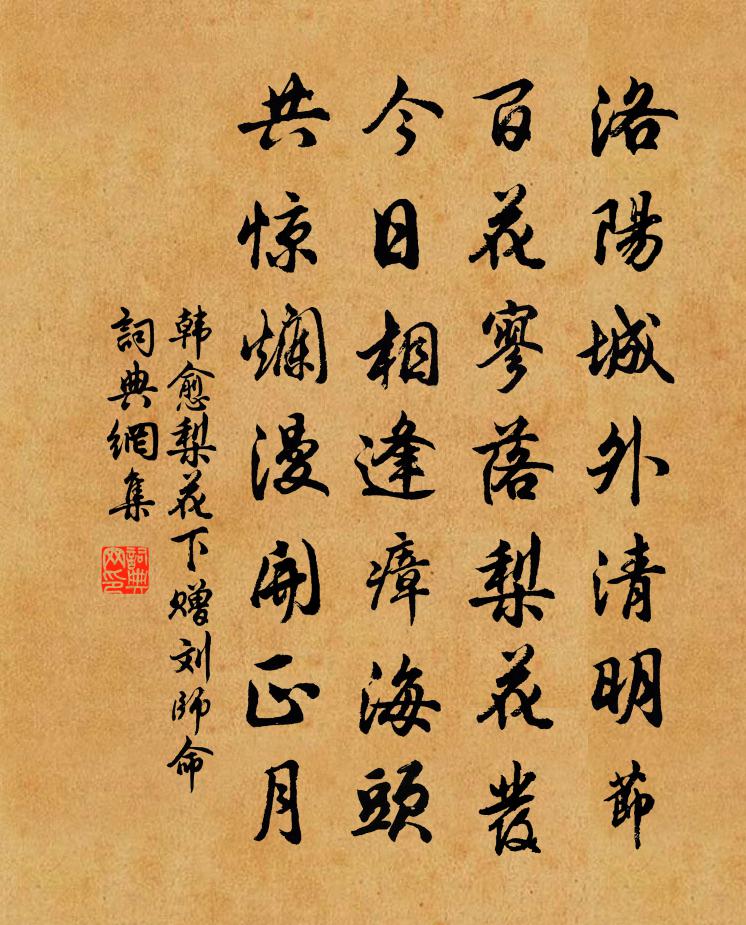 洛陽城外清明節
百花寥落梨花發
今日相逢瘴海頭
共惊爛漫開正月
韩愈梨花下赠刘师命
詞典網集
詞典網印